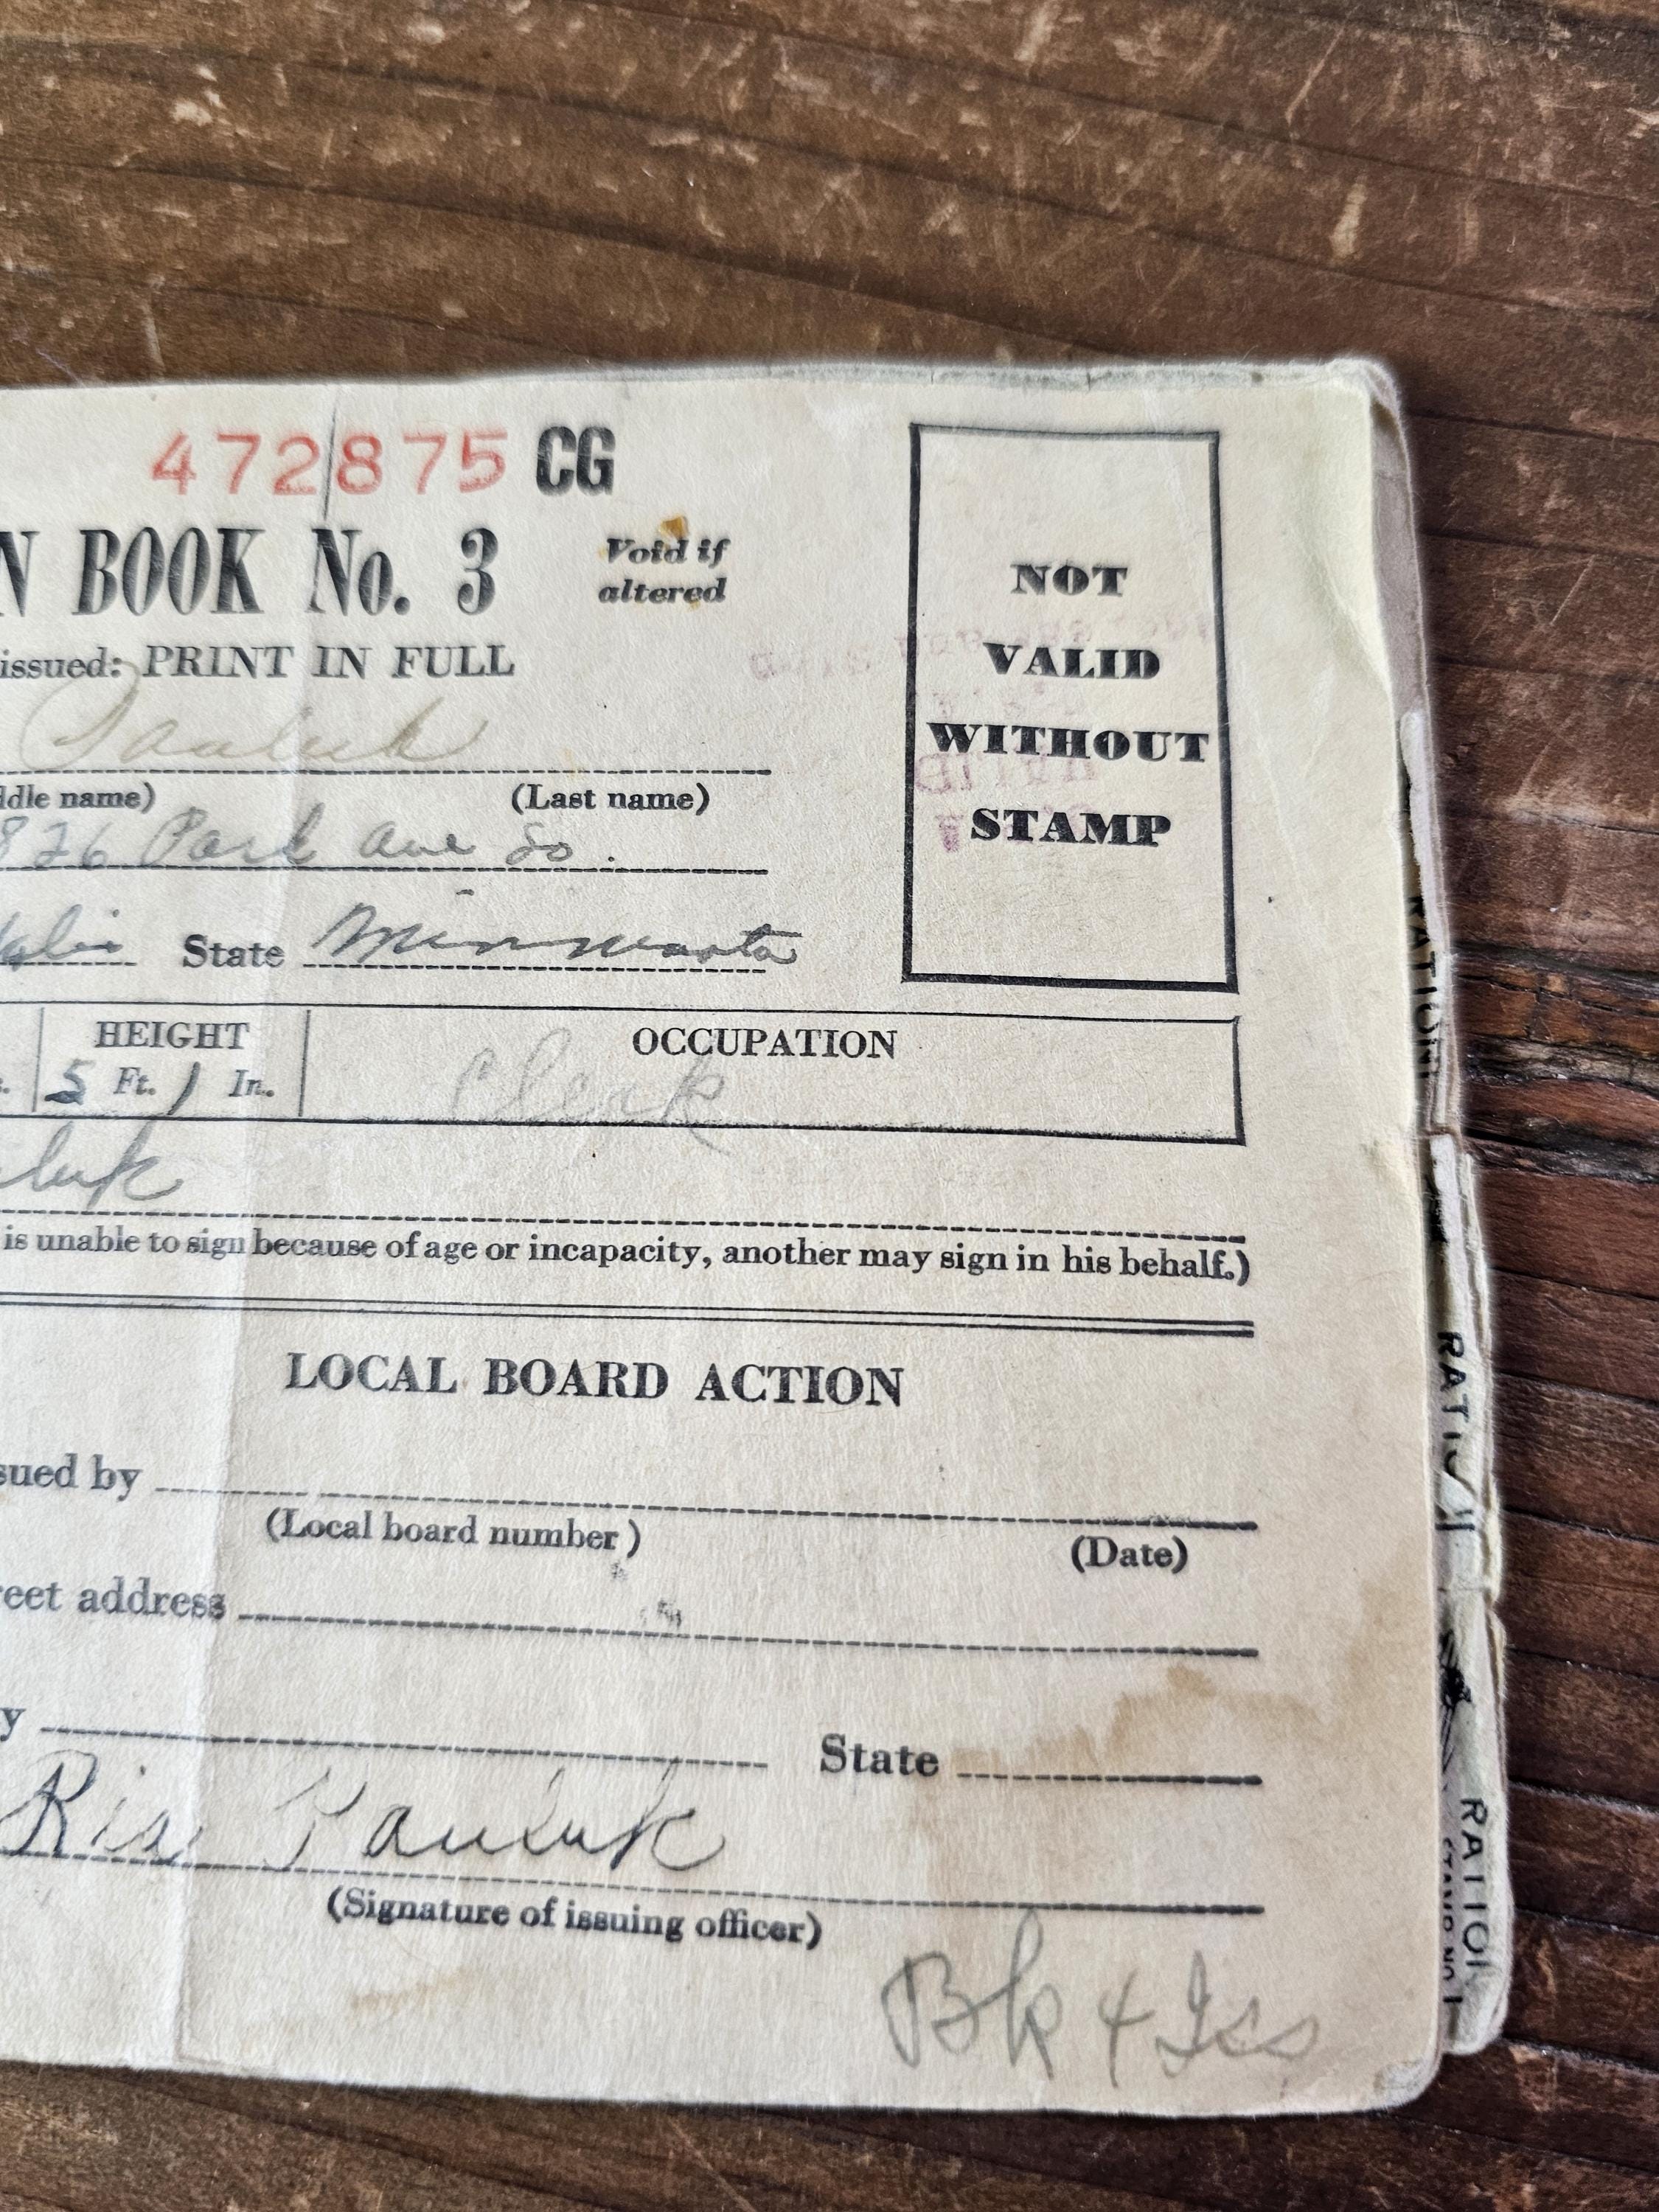 472875 CG
N BOOK No. 3 Void if altered
issued: PRINT IN FULL
NOT
VALID
WITHOUT
STAMP
Pauluk
ddle name) (Last name)
826 Park Ave So.
State Minnesota
HEIGHT OCCUPATION
5 Ft. 1 In. Clerk
luk
is unable to sign because of age or incapacity, another may sign in his behalf.)
LOCAL BOARD ACTION
sued by
(Local board number) (Date)
reet address
y State
Pauluk
(Signature of issuing officer)
Bk 4 Iss
RATION
RATION
RATION
STAMP NO. 1